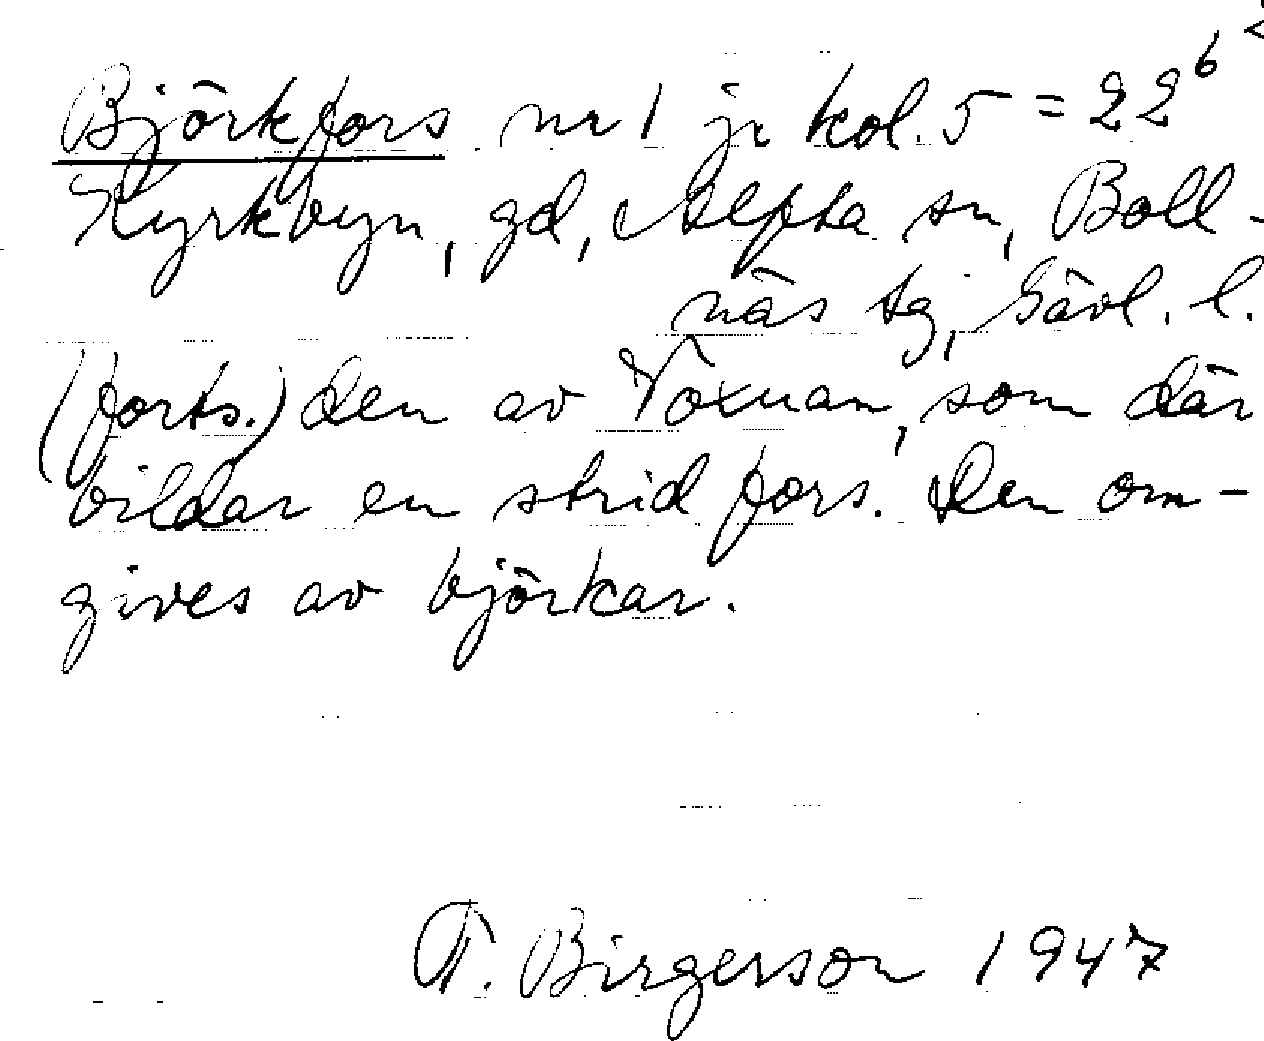 Björkfors nr 1 jr kol. 5 = 22⁶
Kyrkbyn, gd, Alfta sn, Boll-
näs tg, Gävl. l.
(forts.) den av Voxnan, som där
bildar en strid fors. Den om-
gives av björkar.
F. Birgerson 1947